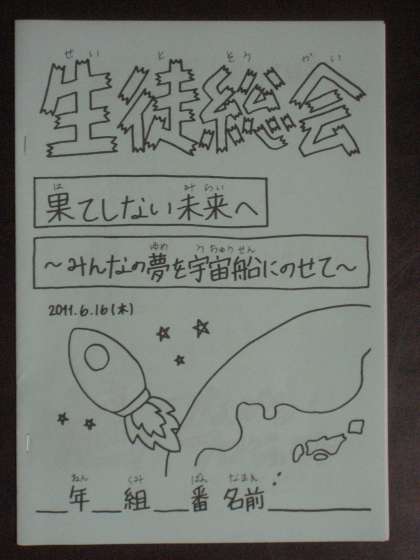 せいとそうかい
生徒総会
は みらい
果てしない未来へ
ゆめ うちゅうせん
〜みんなの夢を宇宙船にのせて〜
2011.6.16(木)
ねん くみ ばん なまえ
__年__組__番 名前______